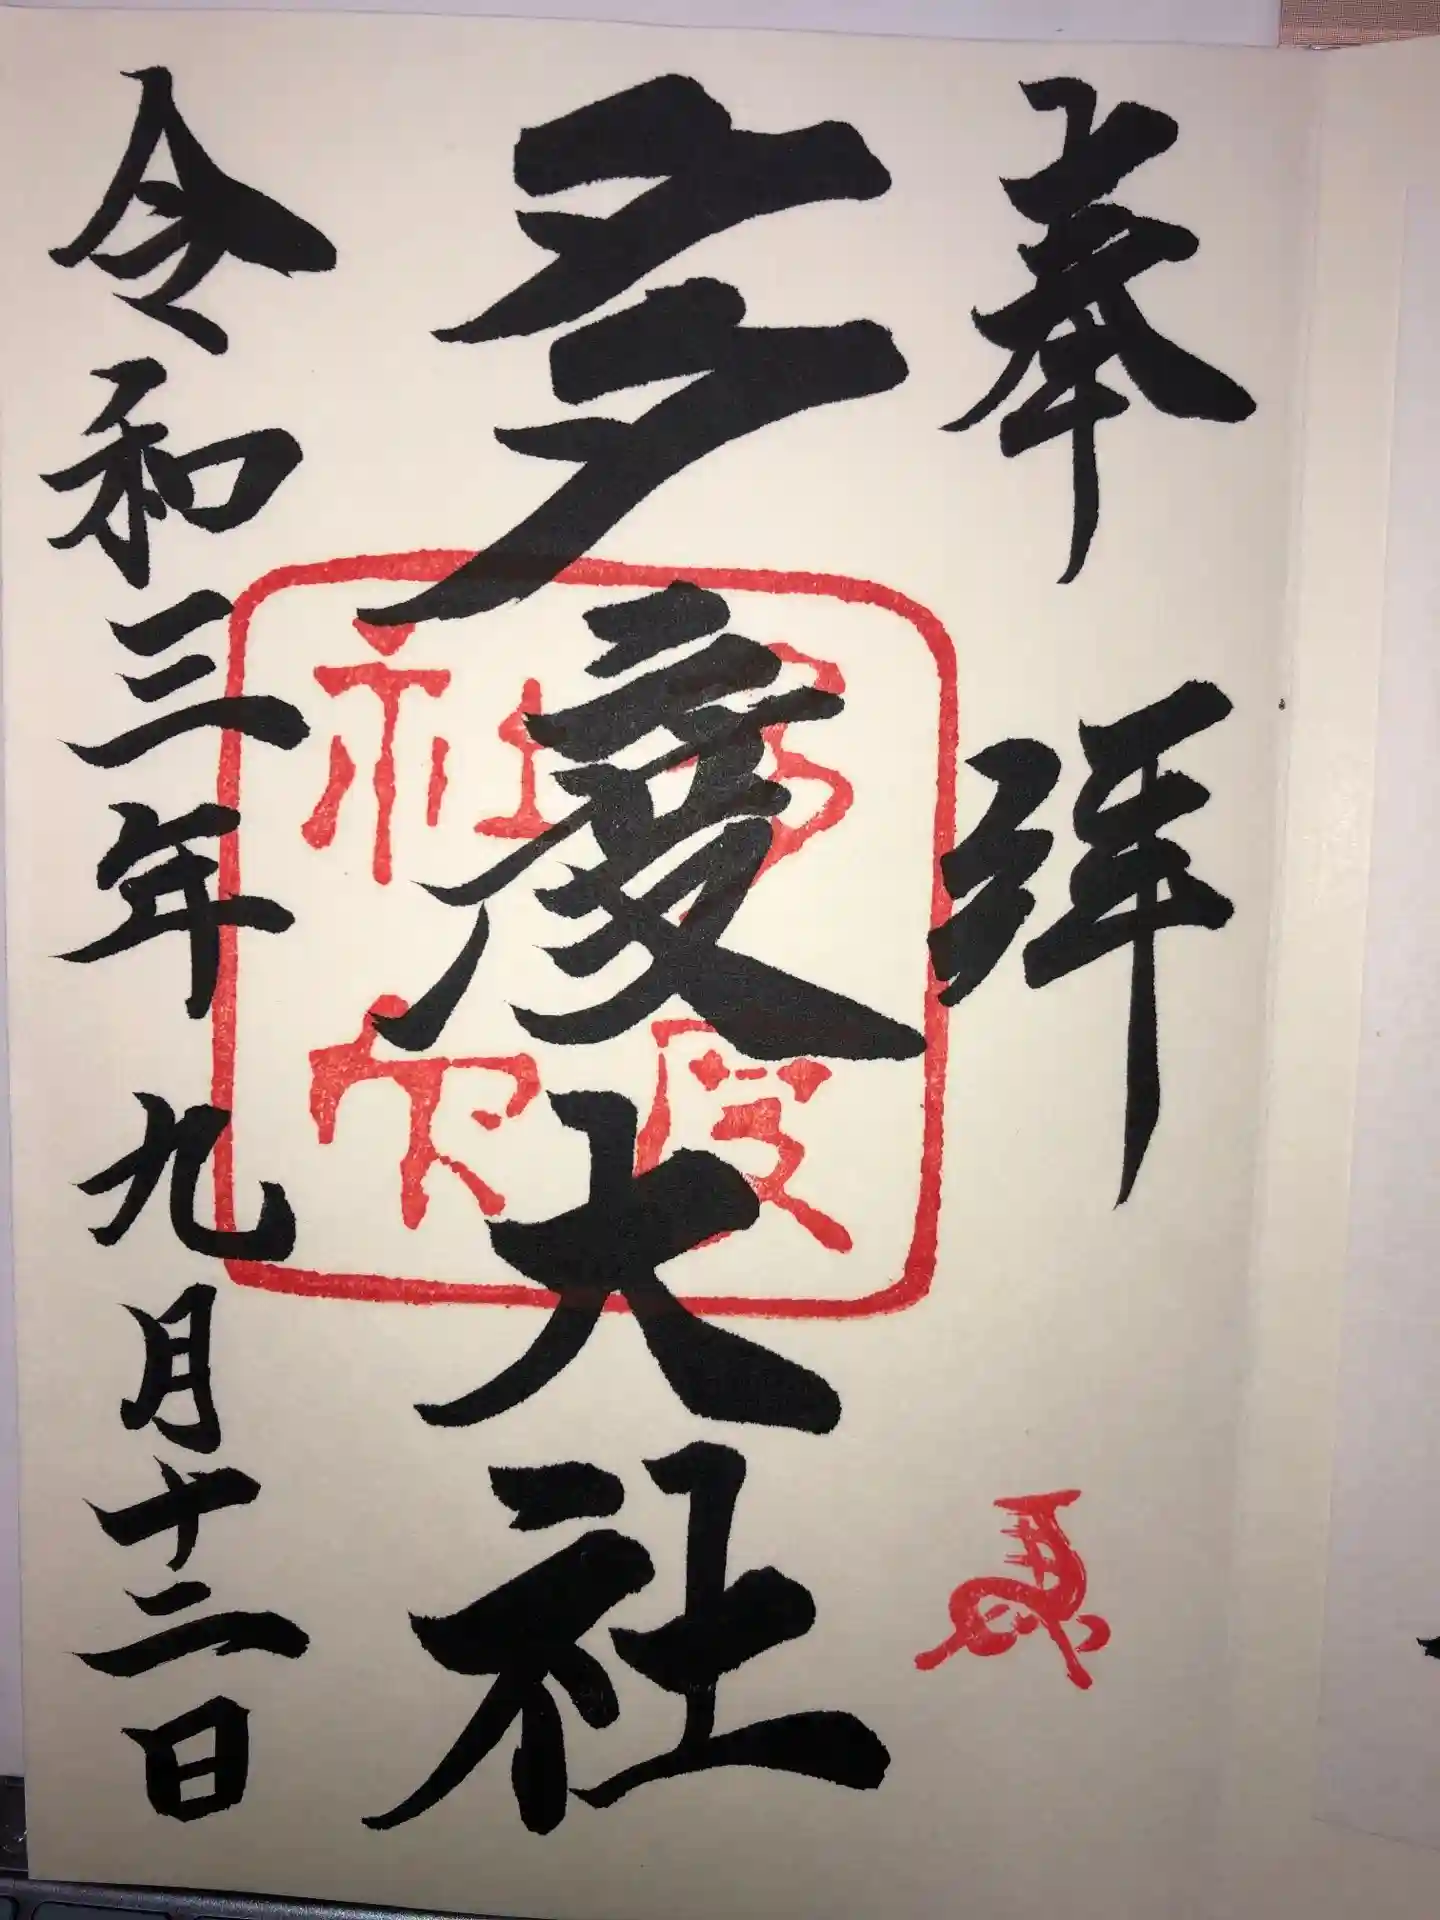 奉拝
多度大社
多度神社
令和三年九月十二日